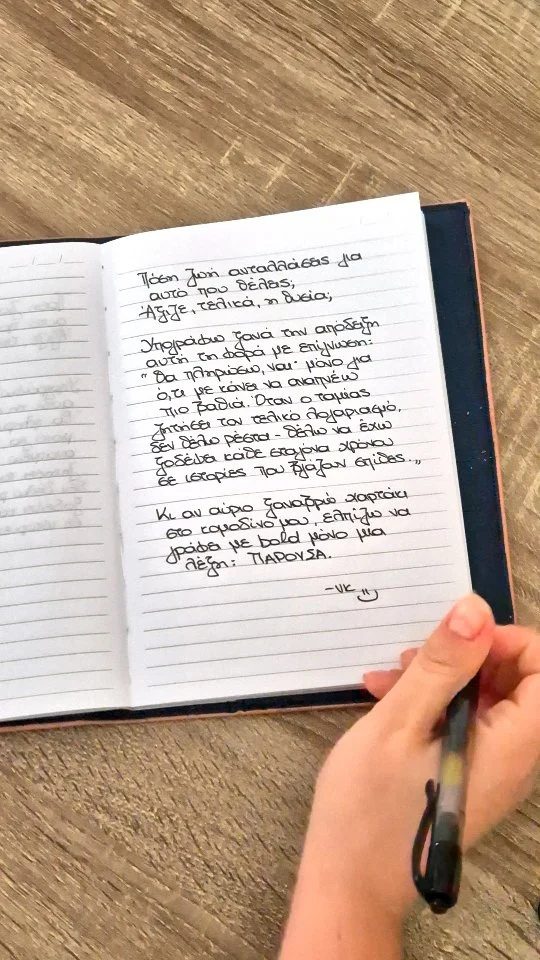 Πόση ζωή ανταλλάσεις για
αυτό που θέλεις;
Άξιζε, τελικά, η θυσία;
Υπογράφω ξανά την απόδειξη
αυτή τη φορά με επίγνωση:
"Θα πληρώσω, ναι· μόνο για
ό,τι με κάνει να αναπνέω
πιο βαθιά. Όταν ο ταμίας
ζητήσει τον τελικό λογαριασμό,
δεν θέλω ρέστα - θέλω να έχω
ξοδέψει κάθε σταγόνα χρόνου
σε ιστορίες που βγάζουν σπίθες.„
Κι αν αύριο ξαναβρώ χαρτάκι
στο κομοδίνο μου, ελπίζω να
γράφει με bold μόνο μια
λέξη: ΠΑΡΟΥΣΑ.
-νκ